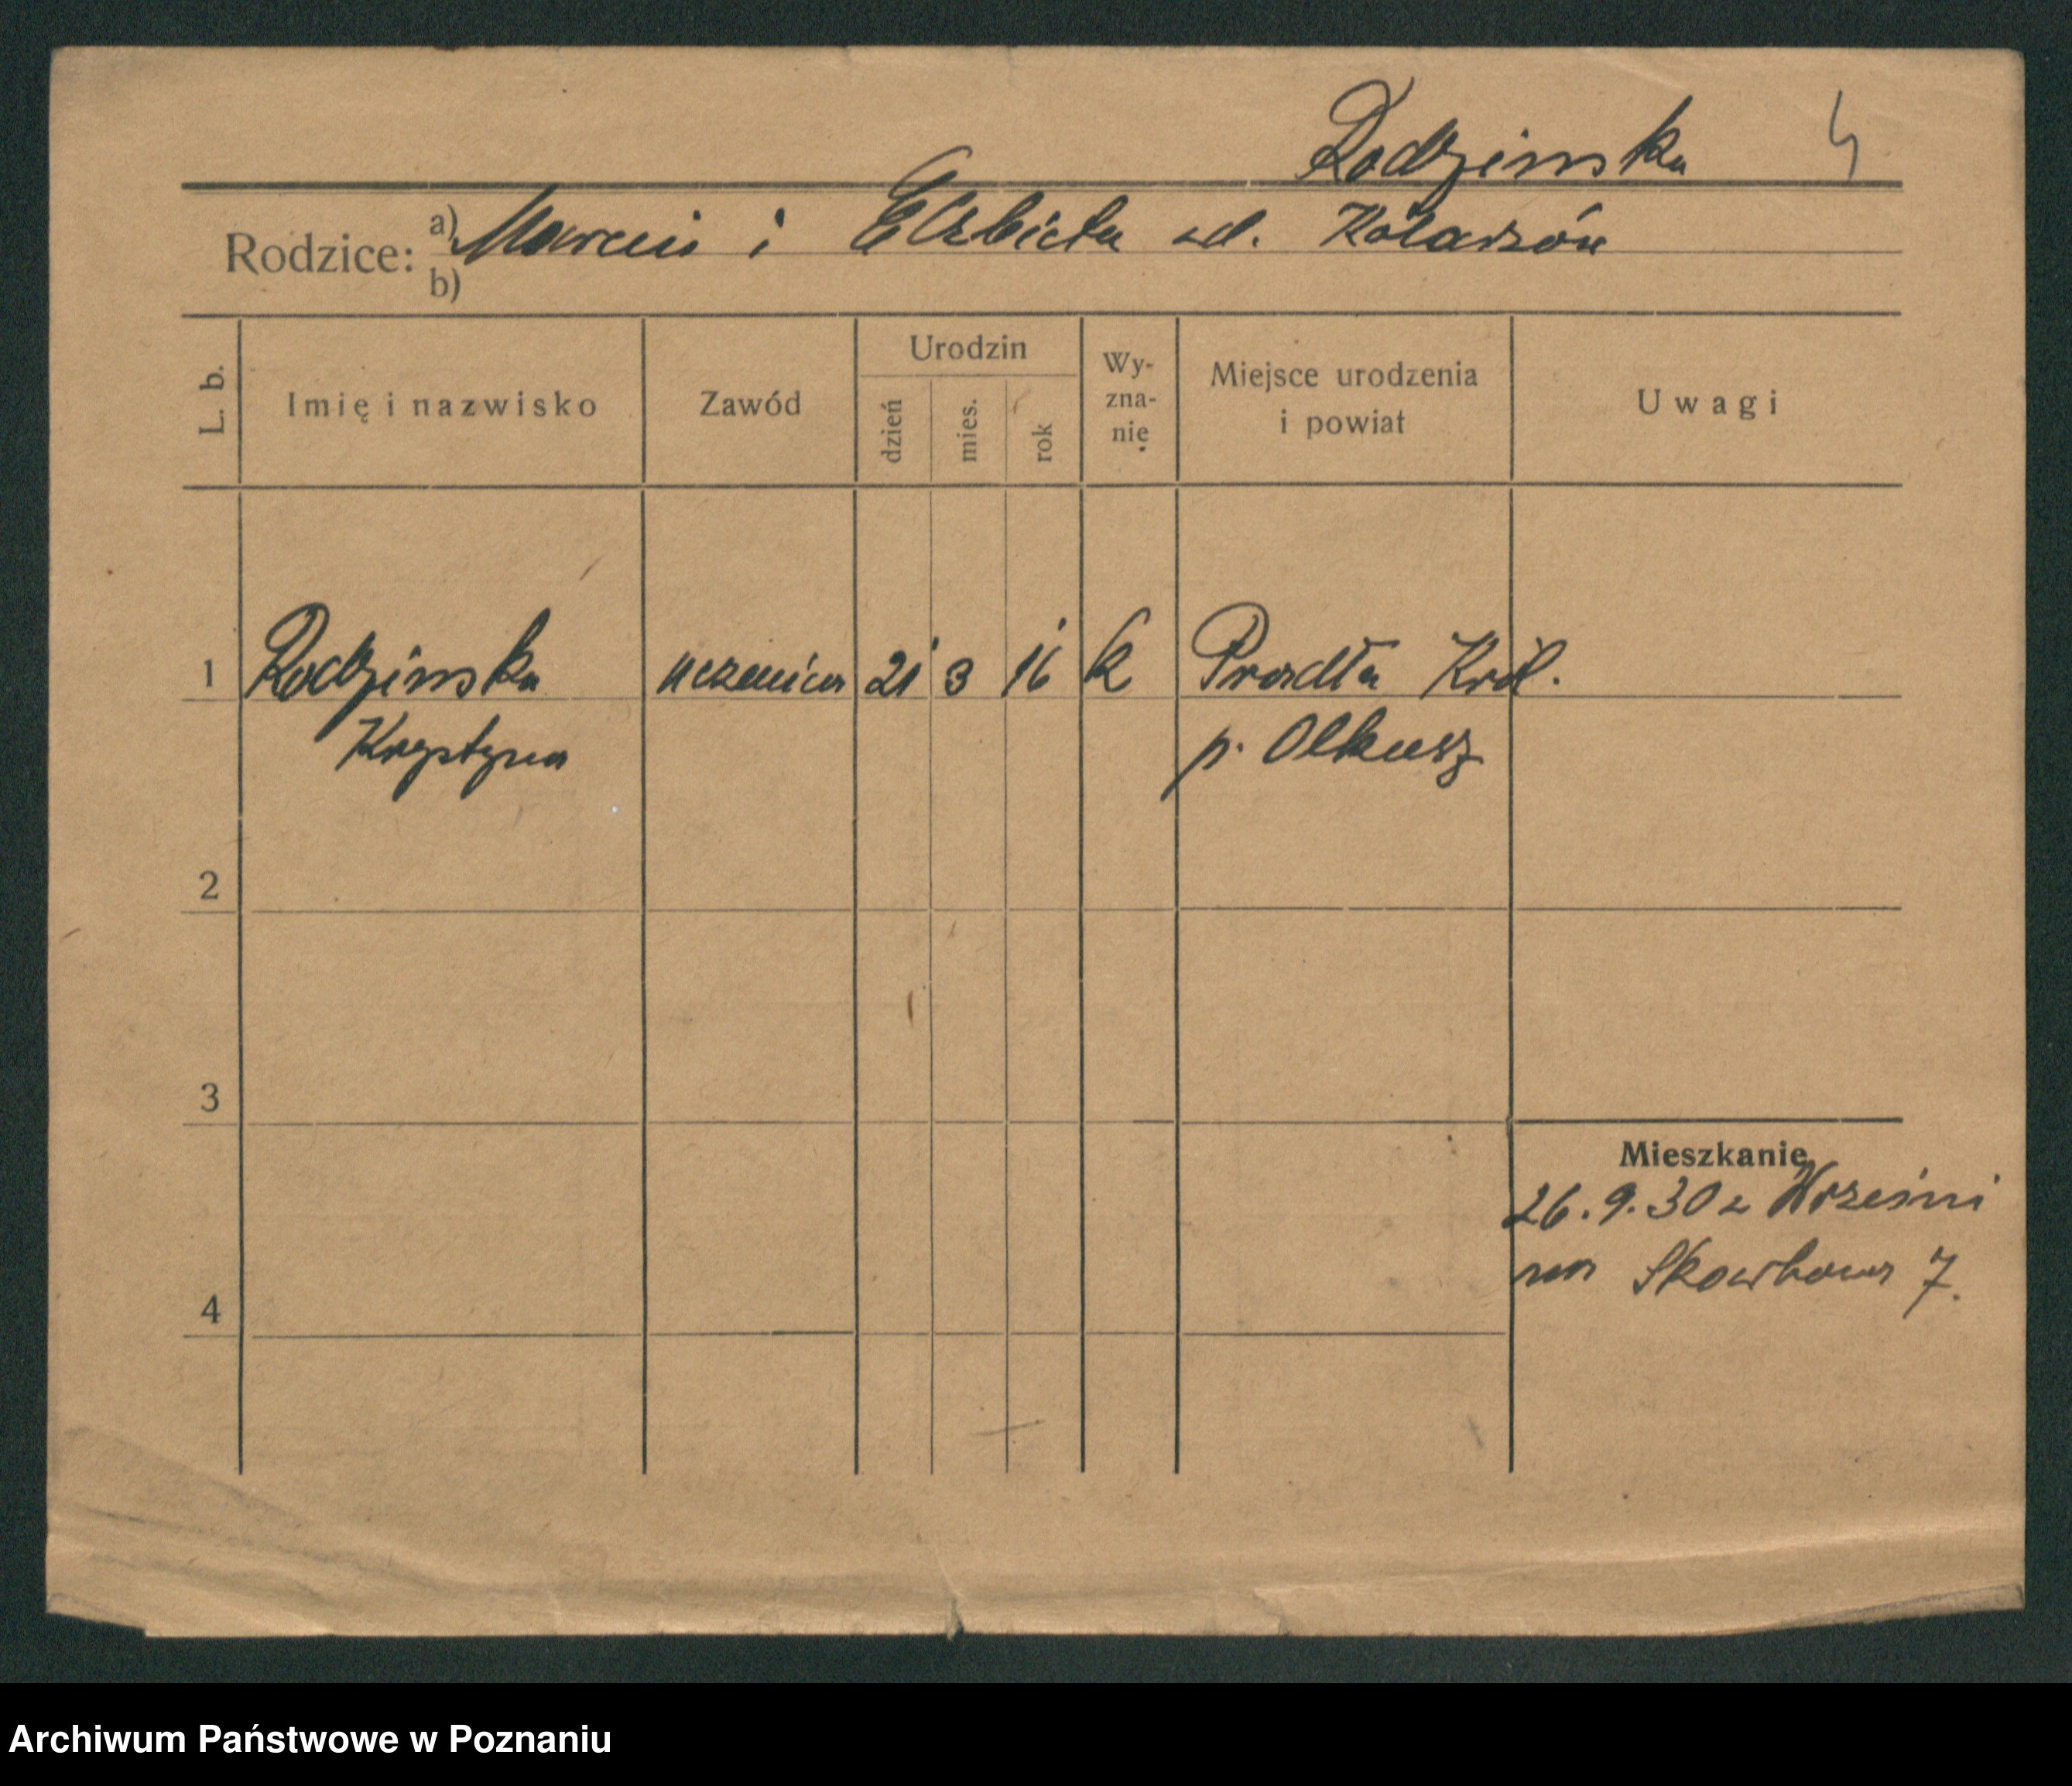 Rodzinska 4
Rodzice: a) Marcin i Elżbieta zd. Kołarzów
b)
L. b. Imię i nazwisko Zawód Urodzin dzień mies. rok Wy-zna-nie Miejsce urodzenia i powiat Uwagi
1 Rodzinska uczenica 21 3 16 k Pradła Król.
Krystyna p. Olkusz
2
3
Mieszkanie
26.9.30 z Wrześni
na Skarbowa 7.
4
Archiwum Państwowe w Poznaniu